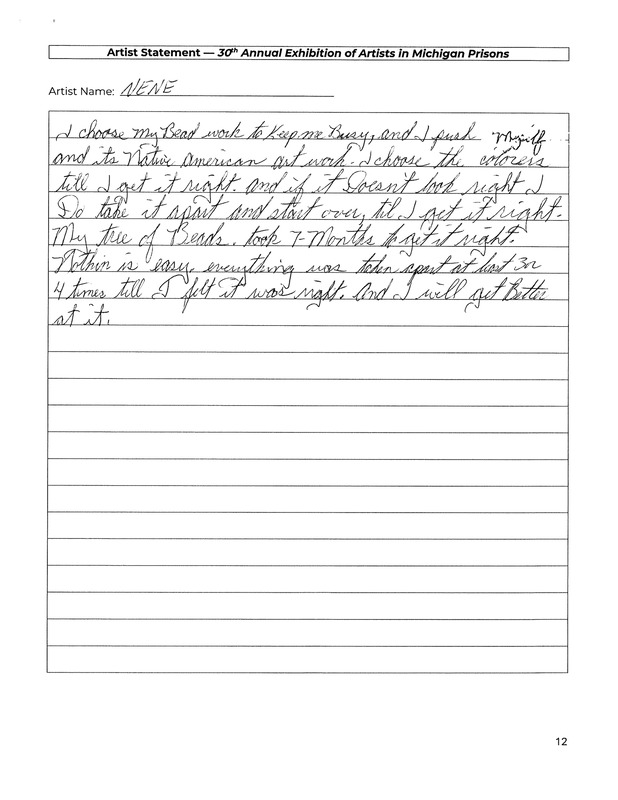 Artist Statement — 30th Annual Exhibition of Artists in Michigan Prisons
Artist Name: NENE
I choose my Bead work to Keep me Busy, and I push Myself
and its Native American art work. I choose the colorers
till I get it right. And if it Doesn't look right I
Do take it apart and start over, til I get it right.
My tree of Beads. took 7-Months to get it right.
Nothin is easy, everything was taken apart at last 3 or
4 times till I felt it was right. And I will get Better
at it.
12